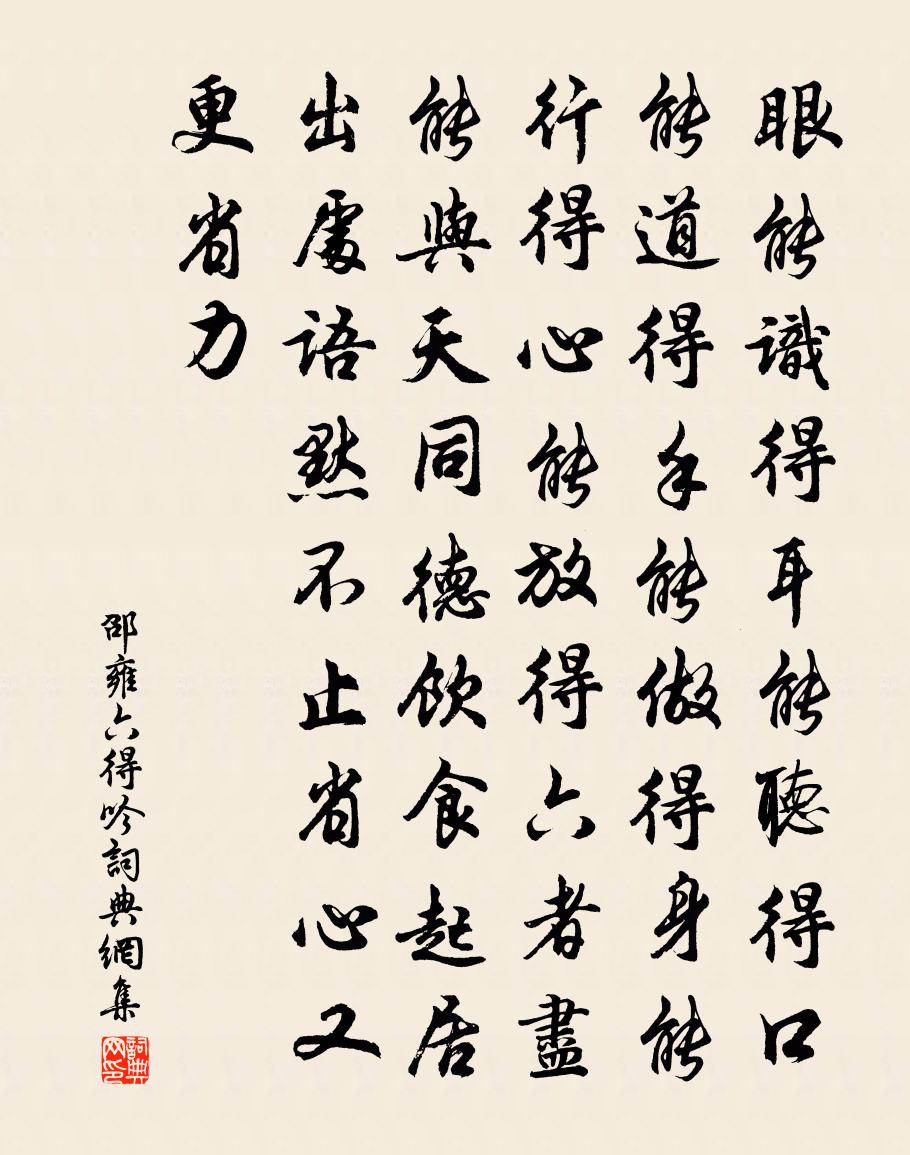 眼能識得耳能聽得口
能道得手能做得身能
行得心能放得六者盡
能與天同德飲食起居
出處語默不止省心又
更省力
邵雍六得吟詞典網集
詞典网印